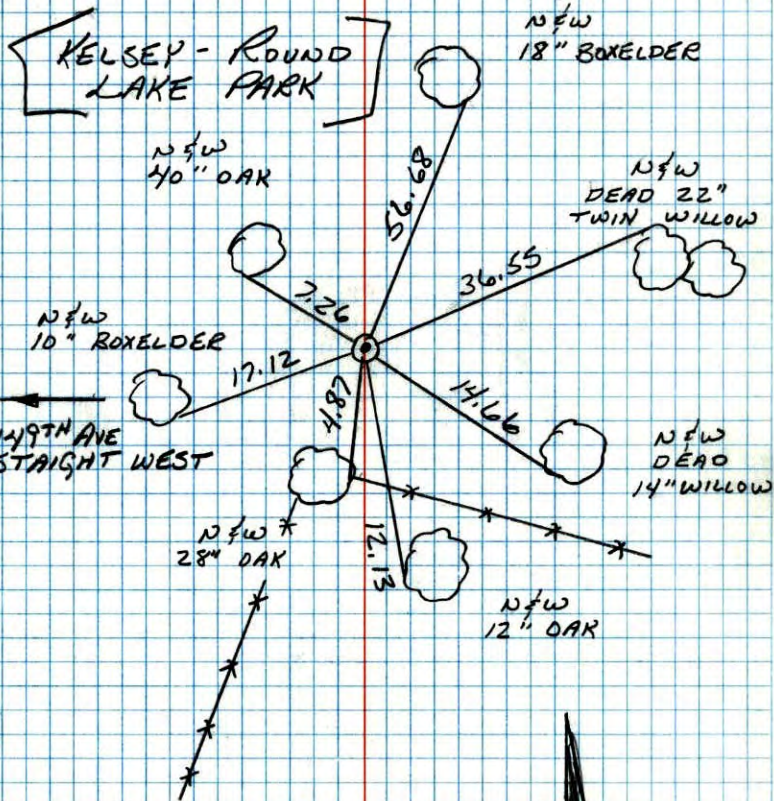 KELSEY - ROUND
LAKE PARK
N & W
18" BOXELDER
N & W
40" OAK
N & W
DEAD 22"
TWIN WILLOW
56.68
36.55
7.26
N & W
10" BOXELDER
17.12
4.87
14.66
149TH AVE
STAIGHT WEST
N & W
DEAD
14" WILLOW
N & W
28" OAK
12.13
N & W
12" OAK